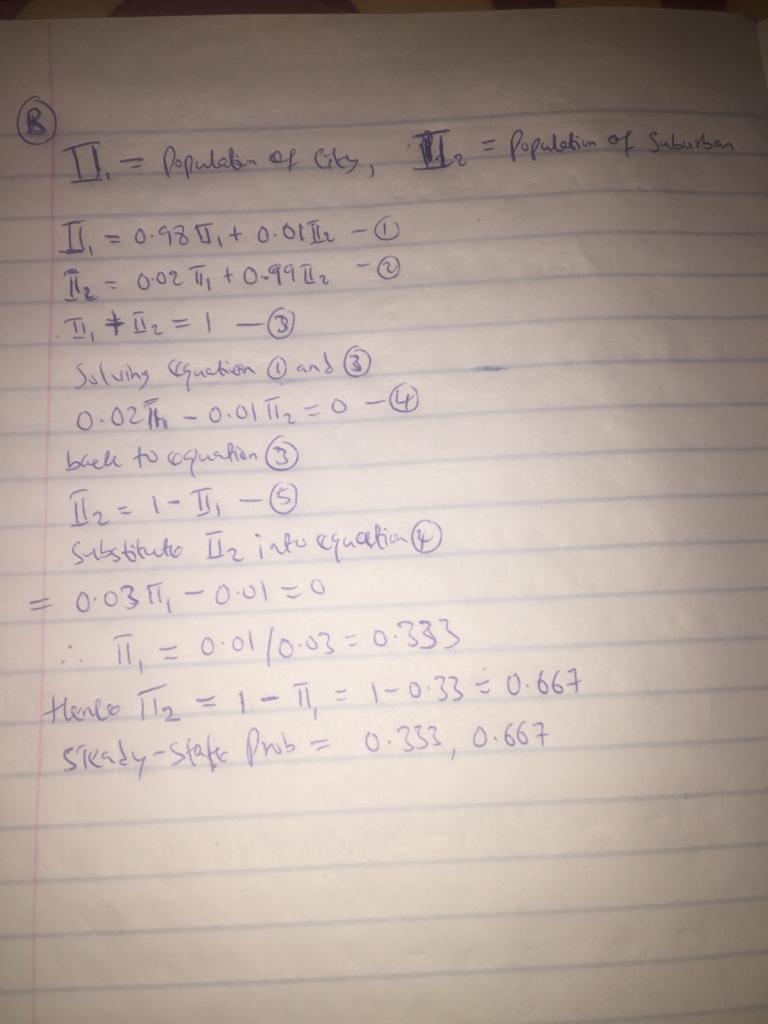 B
π₁ = Population of City, π₂ = Population of Suburban
π₁ = 0.98 π₁ + 0.01 π₂ - ①
π₂ = 0.02 π₁ + 0.99 π₂ - ②
π₁ + π₂ = 1 - ③
Solving equation ① and ③
0.02π₁ - 0.01π₂ = 0 - ④
back to equation ③
π₂ = 1 - π₁ - ⑤
Substitute π₂ into equation ④
= 0.03π₁ - 0.01 = 0
∴ π₁ = 0.01/0.03 = 0.333
Hence π₂ = 1 - π₁ = 1-0.33 = 0.667
Steady-State Prob = 0.333, 0.667